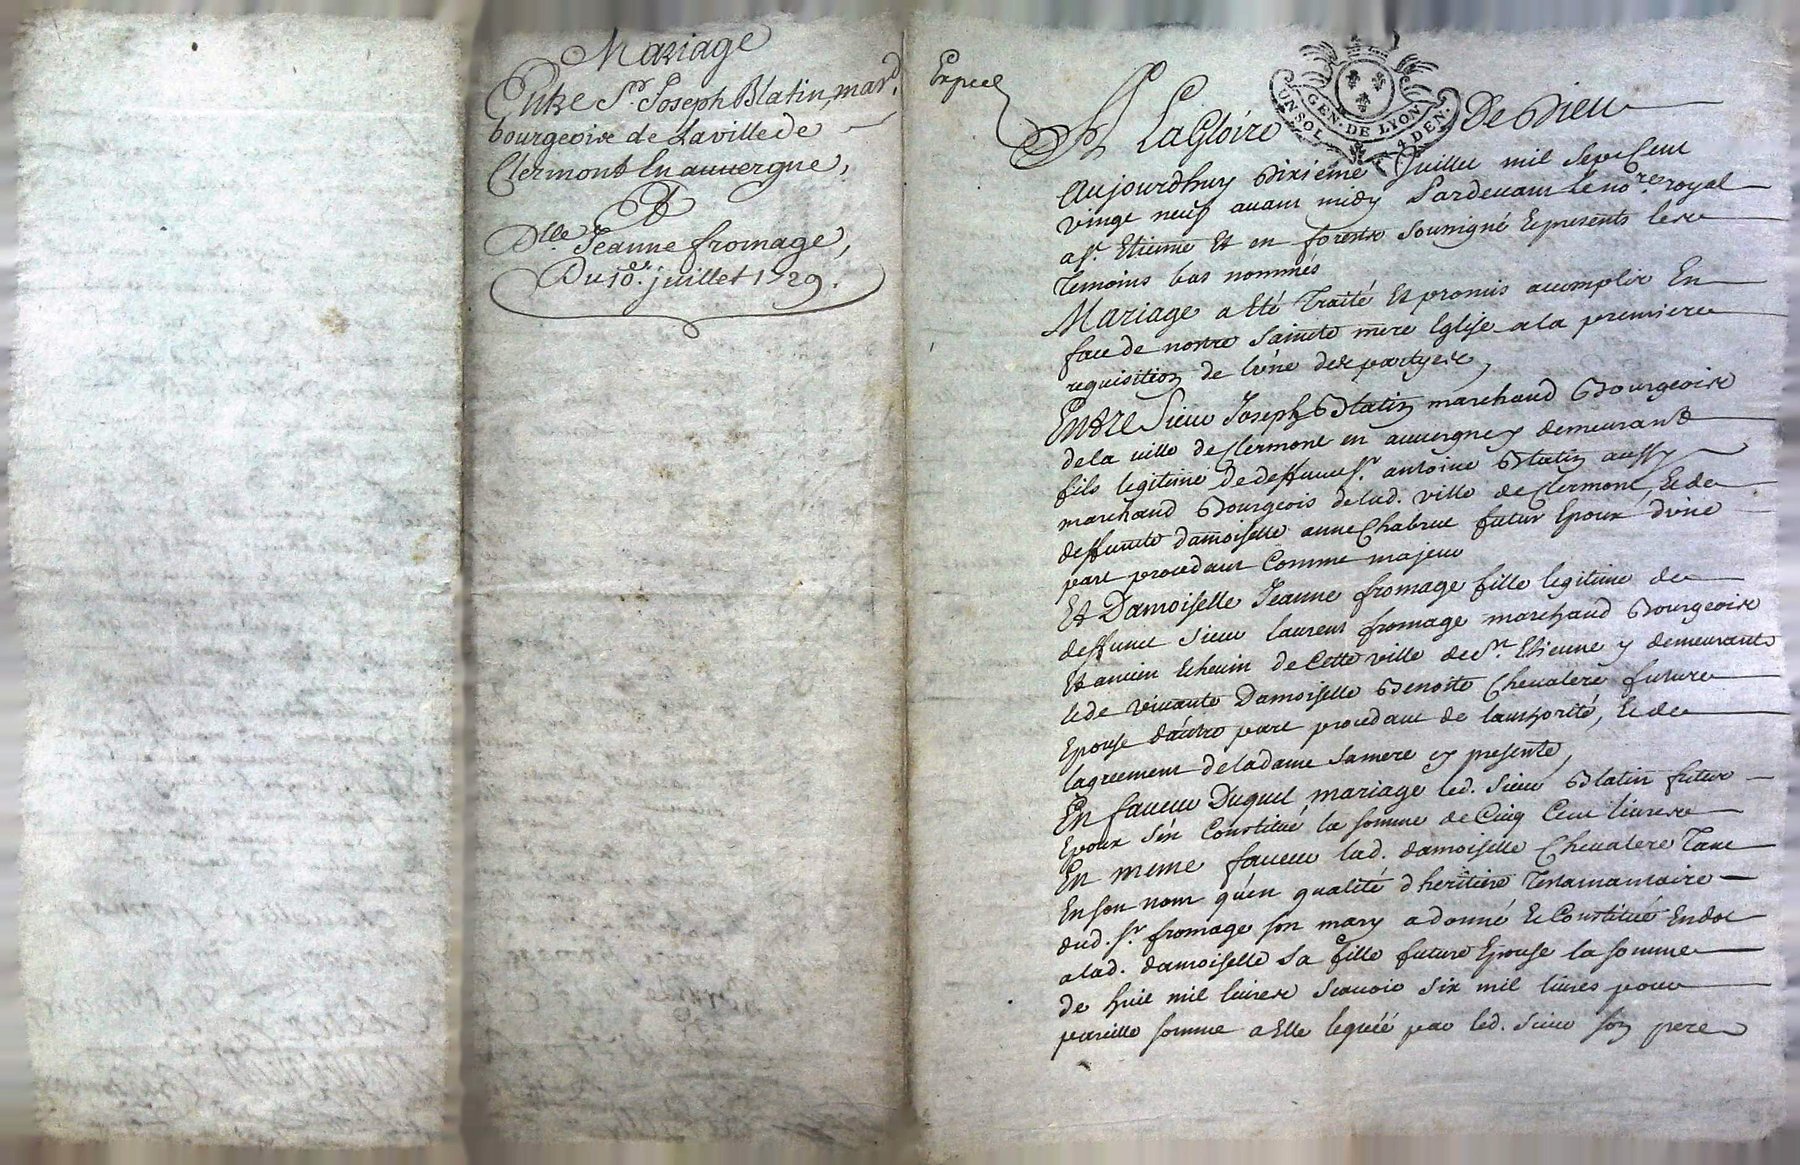 Mariage
Entre Sr. Joseph Blatin, mard.
bourgeoix de La ville de
Clermont En auvergne,
Et
Dlle. Jeanne fromage,
Du 10e. juillet 1729.
Expeé
GEN. DE LYON
UN SOL
DEN.
A La Gloire De Dieu
Aujourdhuy Dixiéme Juillet mil Sept Cent
vingt neuf avant midy Pardevant le nore. royal
a St. Etienne Et en forestz soussigné Et presents les
Temoins bas nommés
Mariage a Eté Traité Et promis acomplir En
face de nostre Sainte mere Eglise a la premiere
requisition de L'une des partyes,
Entre Sieur Joseph Blatin marchand Bourgeoix
de la ville de Clermont en auvergne y demeurant
fils legitime de deffunct Sr. antoine Blatin aussy
marchand Bourgeois de lad. ville de Clermont, Et de
deffuncte damoiselle anne Chabrut futur Epoux d'une
part procedant Comme majeur
Et Damoiselle Jeanne fromage fille legitime de
deffunct Sieur laurent fromage marchand Bourgeoix
Et ancien Echevin de Cette ville de St. Etienne y demeurante
Et de vivante Damoiselle Benoite Chevalere future
Epouse d'autre part procedant de l'authorité, Et de
lagreement de ladame Sa mere cy presente,
En faveur Duquel mariage led. Sieur Blatin futur
Epoux S'en Constitué la Somme de Cinq Cent livres
En meme faveur lad. damoiselle Chevalere Tant
En Son nom qu'en qualité d'heritiere Testamantaire
dud. Sr. fromage Son mary a donné Et Constitué En dot
a lad. damoiselle Sa fille future Epouse la Somme
de huit mil livres Scavoir Six mil livres pour
pareille Somme a Elle leguéé par led. Sieur Son pere